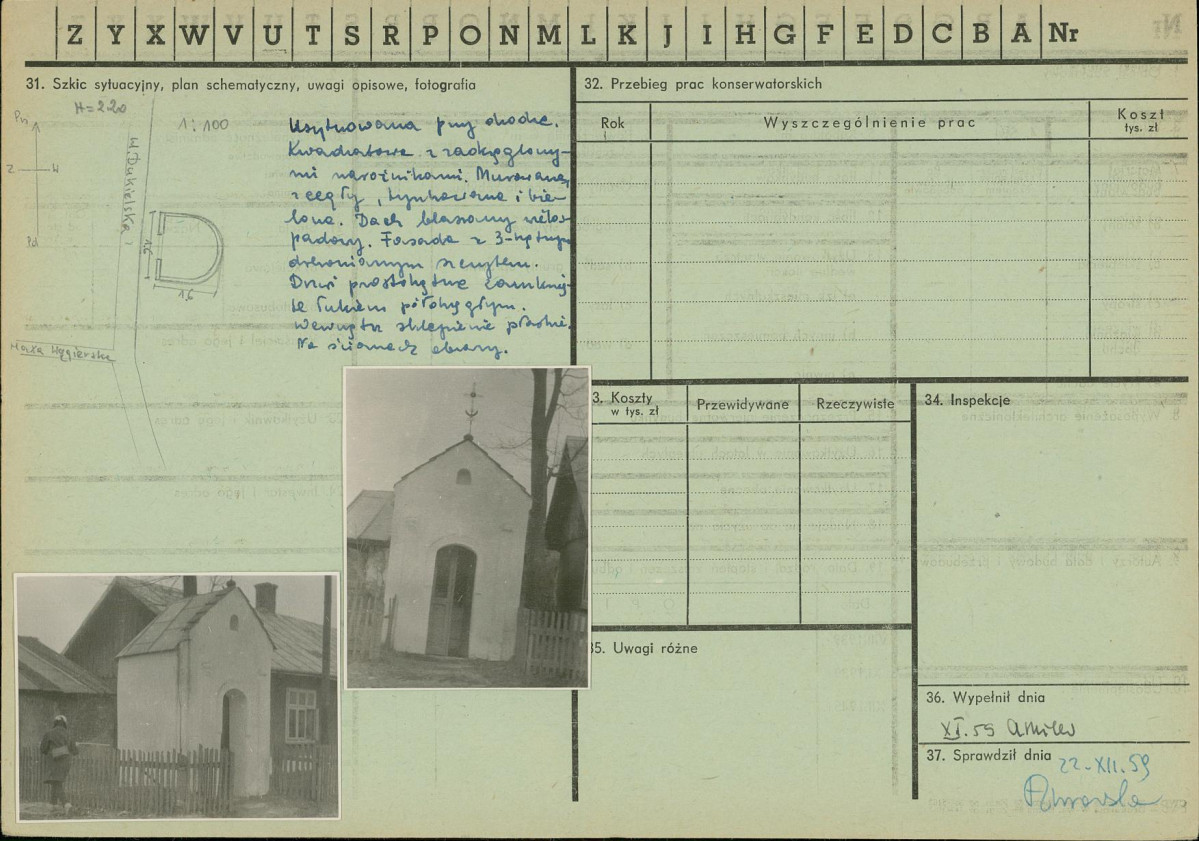 Z Y X W V U T S R P O N M L K J I H G F E D C B A Nr
31. Szkic sytuacyjny, plan schematyczny, uwagi opisowe, fotografia
H=220
1:100
Pn
Z W
Pd
ul. Dukielska
1,6
1,6
Usytuowana przy drodze.
Kwadratowa z zaokrąglony-
mi narożnikami. Murowana,
z cegły, tynkowana i bie-
lona. Dach blaszany wielo-
padowy. Fasada z 3-kątnym
drewnianym szczytem.
Drzwi prostokątne zamknię-
te łukiem półokrągłym.
Wewnątrz sklepienie płaskie.
Na ścianach obrazy.
32. Przebieg prac konserwatorskich
Rok
Wyszczególnienie prac
Koszt
tys. zł
3. Koszty
w tys. zł
Przewidywane
Rzeczywiste
34. Inspekcje
35. Uwagi różne
36. Wypełnił dnia
XI.59
37. Sprawdził dnia
22-XII.59